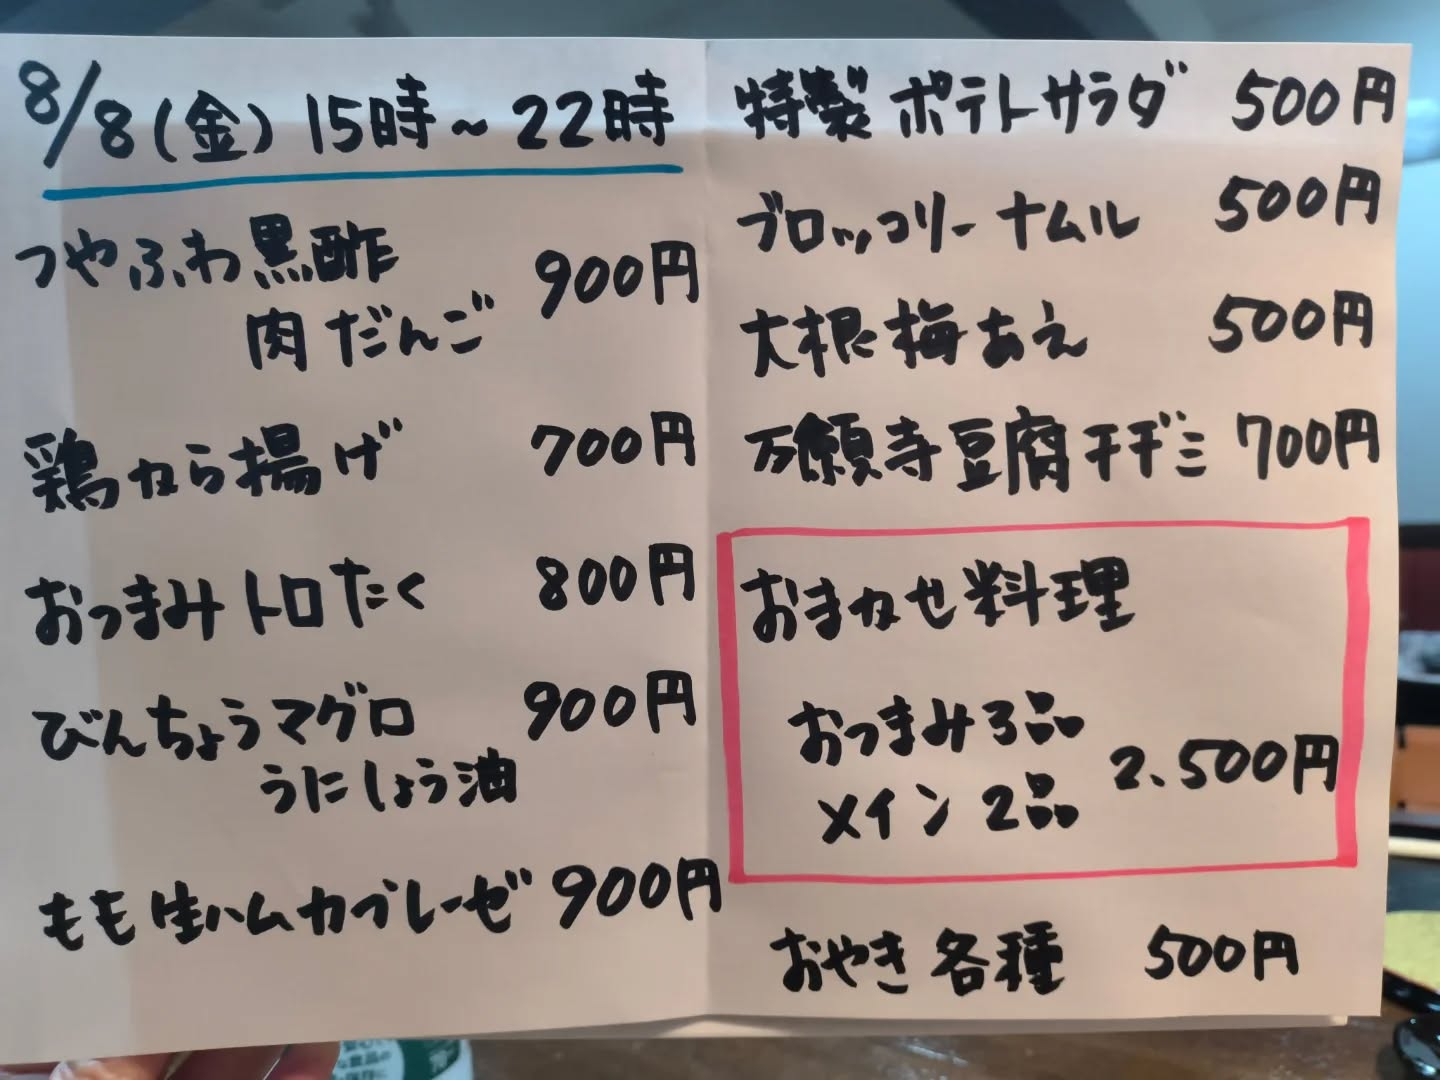 8/8(金) 15時~22時
つやふわ黒酢
肉だんご 900円
鶏から揚げ 700円
おつまみトロたく 800円
びんちょうマグロ 900円
うにしょう油
もも生ハムカプレーゼ 900円
特製ポテトサラダ 500円
ブロッコリーナムル 500円
大根梅あえ 500円
万願寺豆腐チヂミ 700円
おまかせ料理
おつまみ3品
メイン2品 2.500円
おやき各種 500円